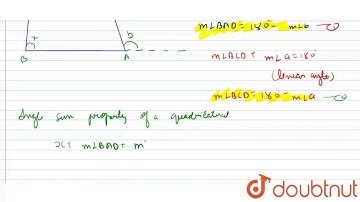 m∠BAD = 180° - m∠b
x
b
m∠BCD + m∠a = 180°
B
A
(linear angle)
m∠BCD = 180° - m∠a
Angle sum property of a quadrilateral
x + m∠BAD + m
doubtnut